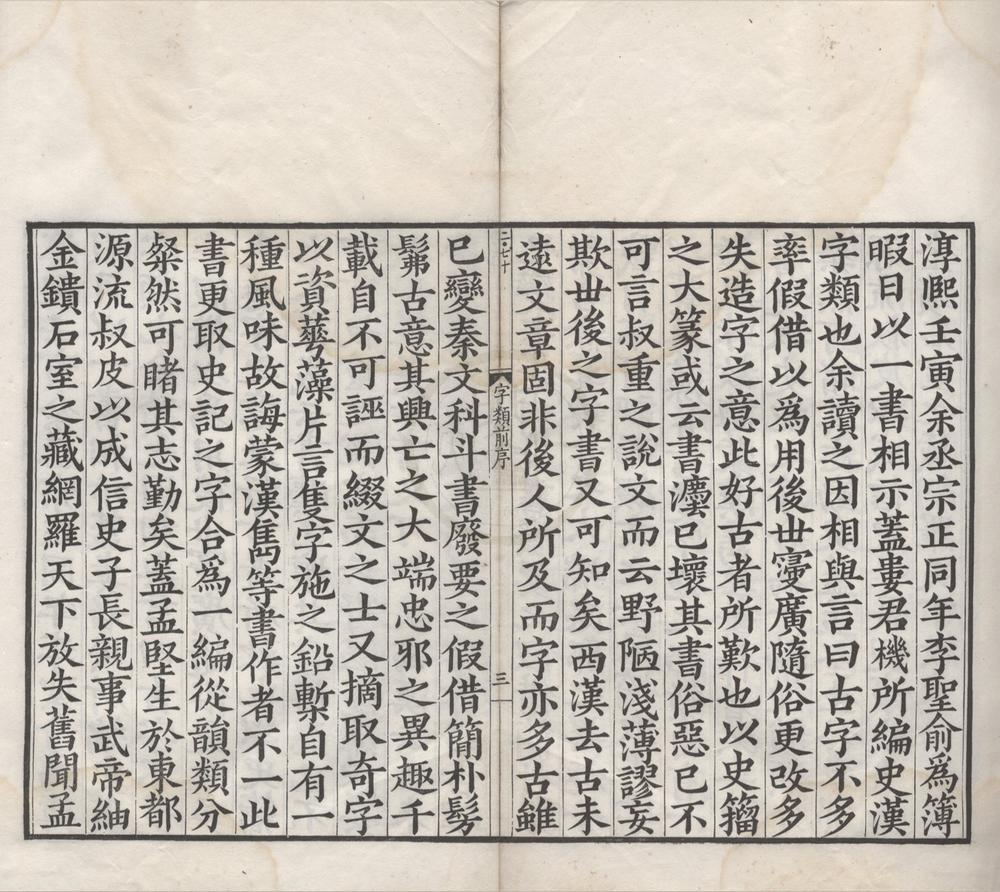 淳熈壬寅余丞宗正同年李聖俞爲簿
暇日以一書相示蓋婁君機所編史漢
字類也余讀之因相與言曰古字不多
率假借以爲用後丗寖廣隨俗更改多
失造字之意此好古者所歎也以史籀
之大篆或云書灋已壞其書俗惡已不
可言叔重之說文而云野陋淺薄謬妄
欺丗後之字書又可知矣西漢去古未
遠文章固非後人所及而字亦多古雖
二七十
字類前序
三
已變秦文科斗書廢要之假借簡朴髣
髴古意其興亡之大端忠邪之異趣千
載自不可誣而綴文之士又摘取奇字
以資華藻片言隻字施之鉛槧自有一
種風味故誨蒙漢雋等書作者不一此
書更取史記之字合爲一編從韻類分
粲然可睹其志勤矣蓋孟堅生於東都
源流叔皮以成信史子長親事武帝紬
金鐀石室之藏網羅天下放失舊聞孟